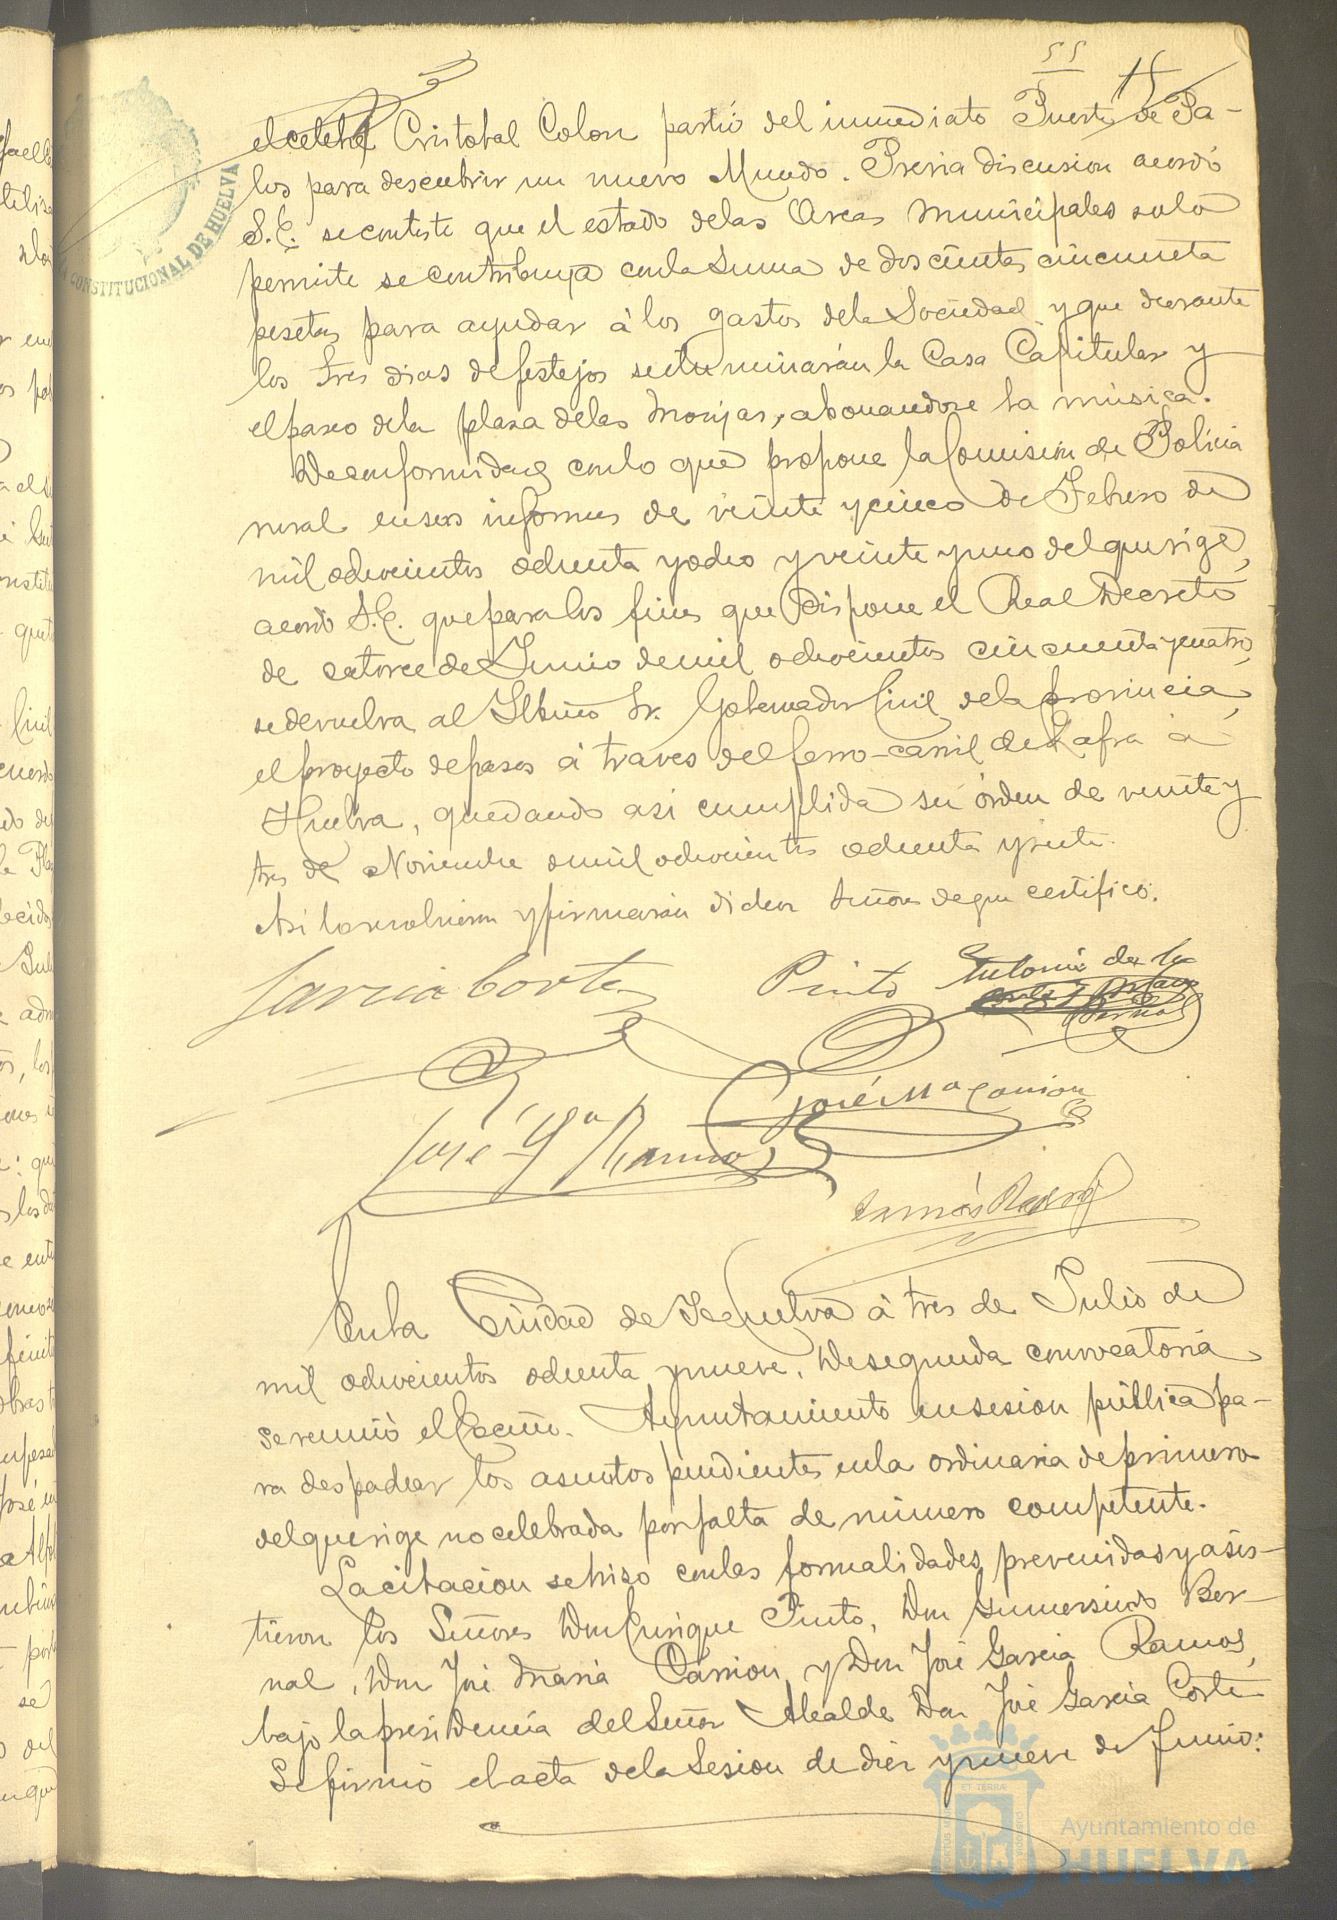 55
el celebre Cristobal Colon partió del inmediato Puerto de Pa-
los para descubrir un nuevo Mundo. Previa discusion acordó
S.E. se conteste que el estado de las Arcas municipales solo
permite se contribuya con la suma de doscientas cincuenta
pesetas para ayudar á los gastos de la Sociedad y que durante
los tres dias de festejos se iluminarán la Casa Capitular y
el paseo de la plaza de las Monjas, abonandose la música.
De conformidad con lo que propone la Comision de Policia
rural en sus informes de veinte y cinco de Febrero de
mil ochocientos ochenta y ocho y veinte y uno del que rige,
acordó S.E. que para los fines que dispone el Real Decreto
de catorce de Junio de mil ochocientos cincuenta y cuatro,
se devuelva al Iltmo Sr. Gobernador Civil de la provincia,
el proyecto de pasos á traves del ferro-carril de Zafra á
Huelva, quedando asi cumplida su órden de veinte y
tres de Noviembre de mil ochocientos ochenta y siete.
Asi lo resolvieron y firmarán dichos Señores de que certifico.
Garcia Cortes Pinto Antonio de la
Corte
Bernal
José Ma Carrion
José Ga Ramos
Tomás
En la Ciudad de Huelva á tres de Julio de
mil ochocientos ochenta y nueve. De segunda convocatoria
se reunió el Excmo. Ayuntamiento en sesion pública pa-
ra despachar los asuntos pendientes en la ordinaria de primero
del que rige no celebrada por falta de número competente.
La citacion se hizo con las formalidades prevenidas y asis-
tieron los Señores Don Enrique Pinto, Don Gumersindo Ber-
nal, Don José Maria Carrion, y Don José Garcia Ramos,
bajo la presidencia del Señor Alcalde Don José Garcia Corte
Se firmó el acta de la Sesion de diez y nueve de Junio:
CONSTITUCIONAL DE HUELVA
Ayuntamiento de
HUELVA